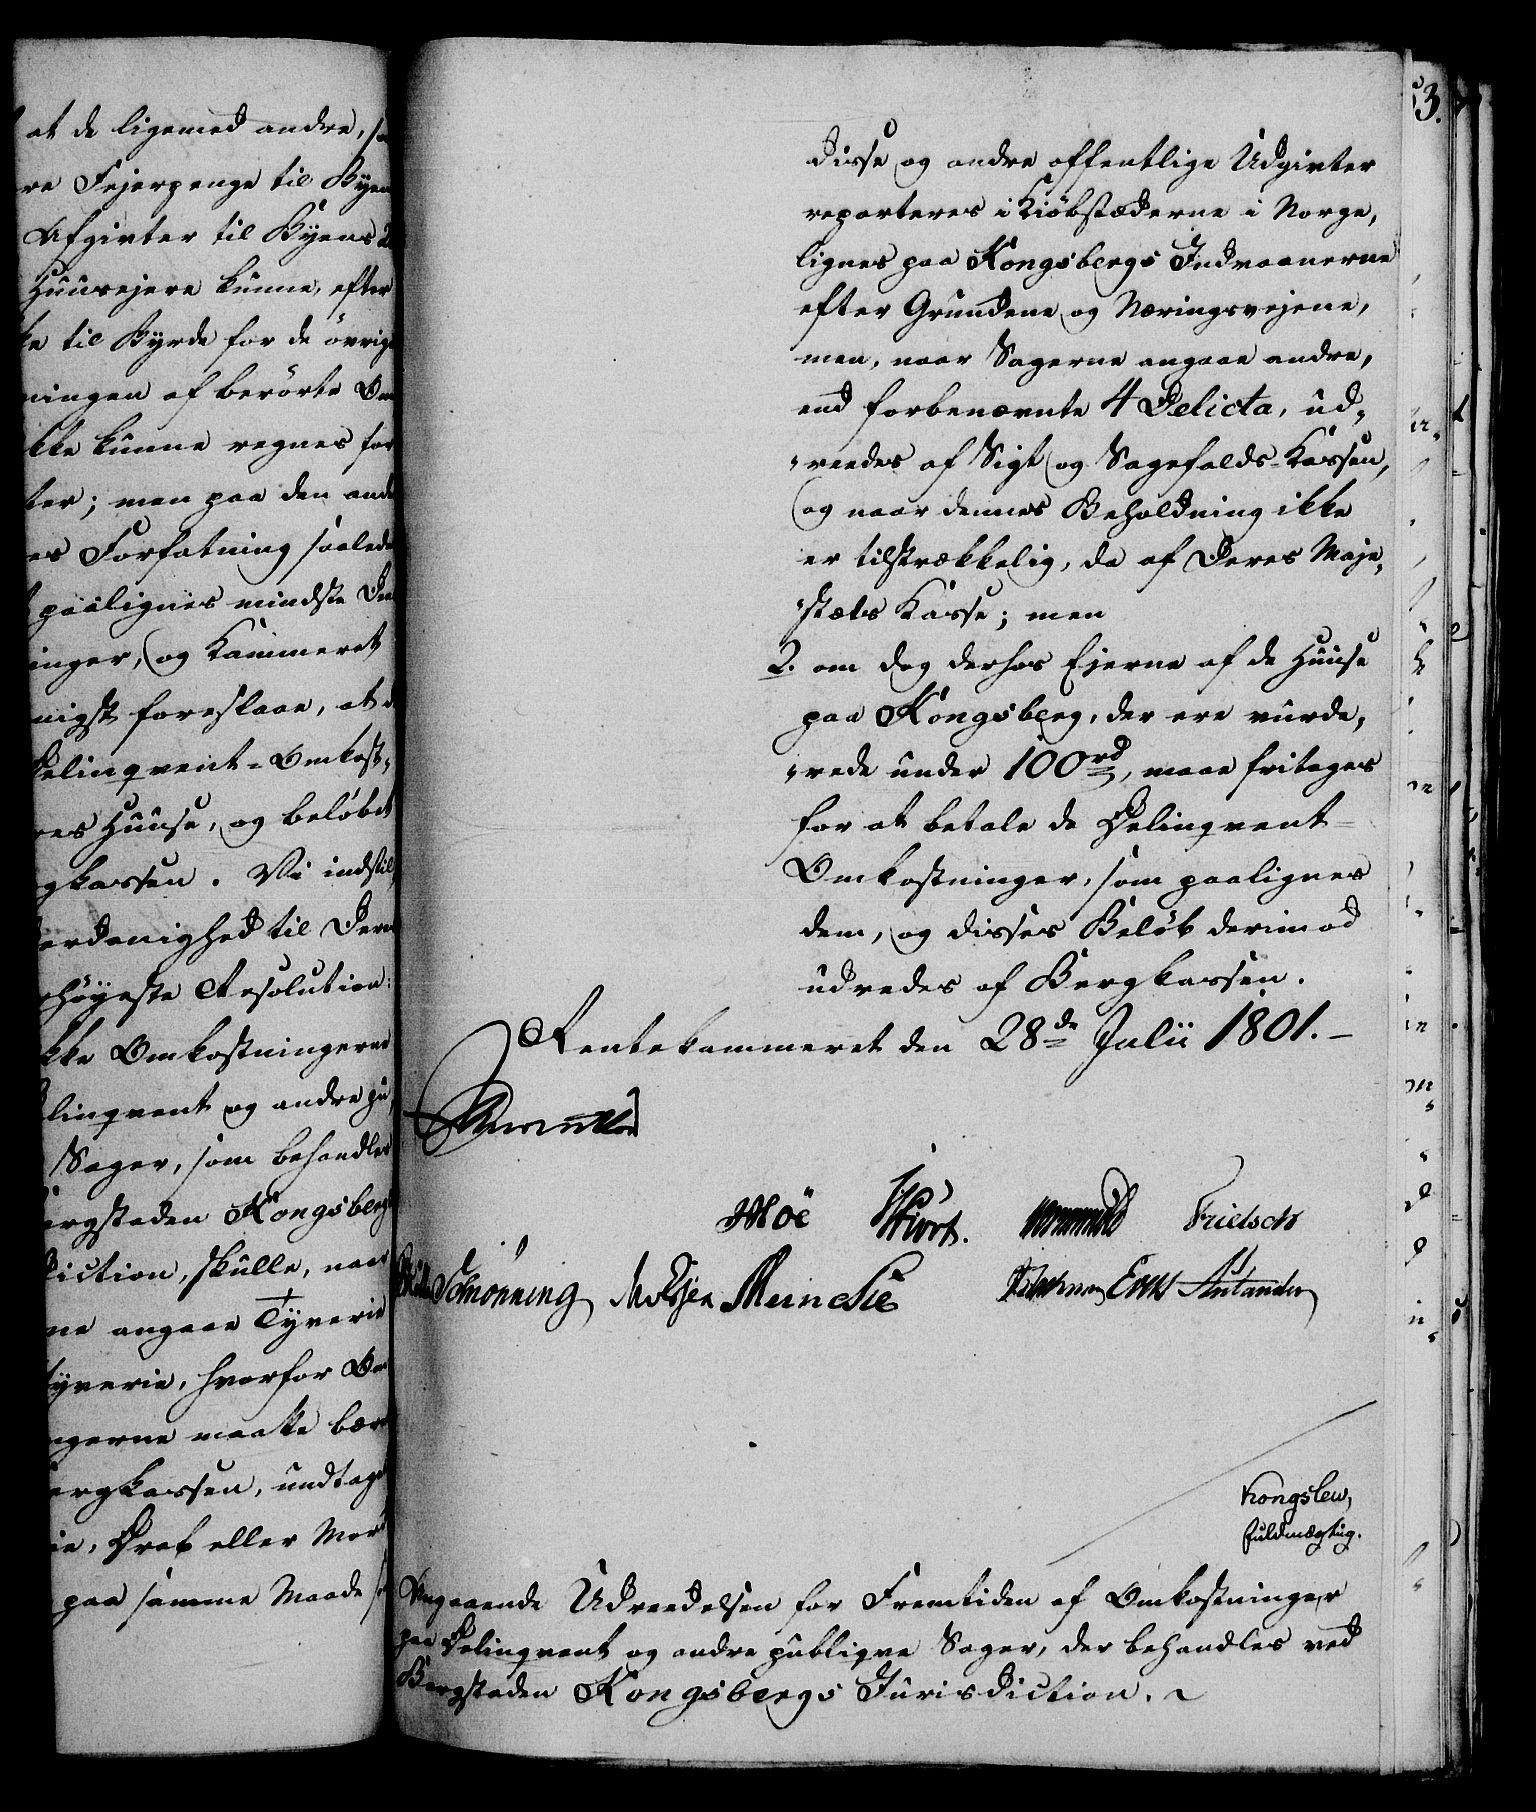 at de ligemed andre,
re Fejerpenge til Byen
Afgivter til Byens
Huusejere kunne, efter
til Byrde for de övrige
ningen af berörte
ikke kunne regnes for
ter; men paa den
es Forfatning saalede
paalignes mindste
inger, og Kammeret
nigst foreslaae, at
Delinqvent-Omkost-
res Huuse, og belöbet
gkassen. Vi indstil
erdanighed til Deres
höyeste Resolution:
ikke Omkostningerne
linqvent og andre pu
Sager, som behandles
ergstaden Kongsberg
diction, skulle, naar
ne angaae Tyverie
tyverie, hvorfor
ngerne maatte bær
ergkassen, undtage
ie, Drab eller Mor
paa samme Maade
53.
disse og andre offentlige Udgivter
reparteres i Kiöbstæderne i Norge,
lignes paa Kongsbergs Indvaanerne
efter Grundene og Næringsvejene,
men, naar Sagerne angaae andre,
end forbenævnte 4 Delicta, ud-
-reedes af Sigt og Sagefalds-Kassen,
og naar dennes Beholdning ikke
er tilstrækkelig, da af Deres Maje-
-stæts Kasse; men
2. om dog derhos Ejerne af de Huuse
paa Kongsberg, der ere vurde-
-rede under 100 rd, maae fritages
for at betale de Delinqvent-
Omkostninger, som paalignes
dem, og disses Belöb derimod
udredes af Bergkassen.
Rentekammeret den 28de Julii 1801. -
Moe Hiort. Frieltsch
Schönning Meincke
Kongslew,
fuldmægtig.
Angaaende Udreedelsen for Fremtiden af Omkostninger
paa Delinqvent og andre publiqve Sager, der behandles ved
Bergstaden Kongsbergs Jurisdiction.